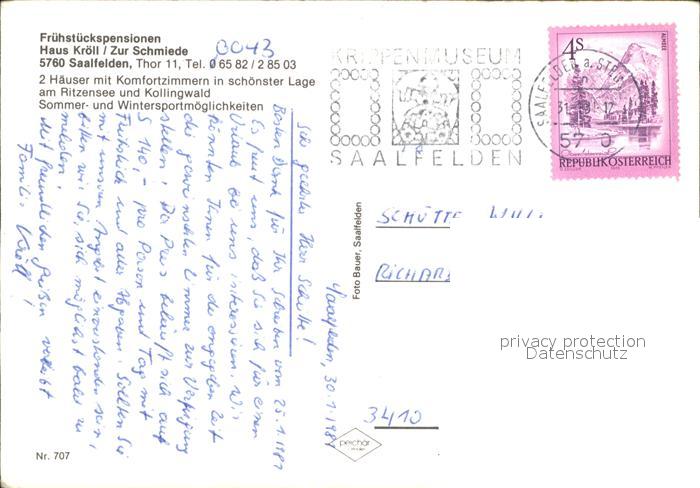 Frühstückspensionen
Haus Kröll / Zur Schmiede
5760 Saalfelden, Thor 11, Tel. 0 65 82 / 2 85 03
2 Häuser mit Komfortzimmern in schönster Lage
am Ritzensee und Kollingwald
Sommer- und Wintersportmöglichkeiten
0043
KRIPPENMUSEUM
SAALFELDEN
4s
REPUBLIK ÖSTERREICH
Saalfelden, 30.1.1981
Sehr geehrter Herr Schütte!
Besten Dank für Ihr Schreiben vom 25.1.1981
Es freut uns, daß Sie sich für einen
Urlaub bei uns interessieren. Wir
könnten Ihnen für die angegebene Zeit
die gewünschten Zimmer zur Verfügung
stellen! Der Preis beläuft sich auf
S 140,- pro Person und Tag mit
Frühstück und aller Abgaben. Sollten Sie
mit unserem Angebot einverstanden sein,
bitten wir Sie, sich möglichst bald zu
melden!
Mit freundlichen Grüßen verbleibt
Familie Kröll!
Foto Bauer, Saalfelden
SCHÜTTE
RICHAR
3410
privacy protection
Datenschutz
Nr. 707